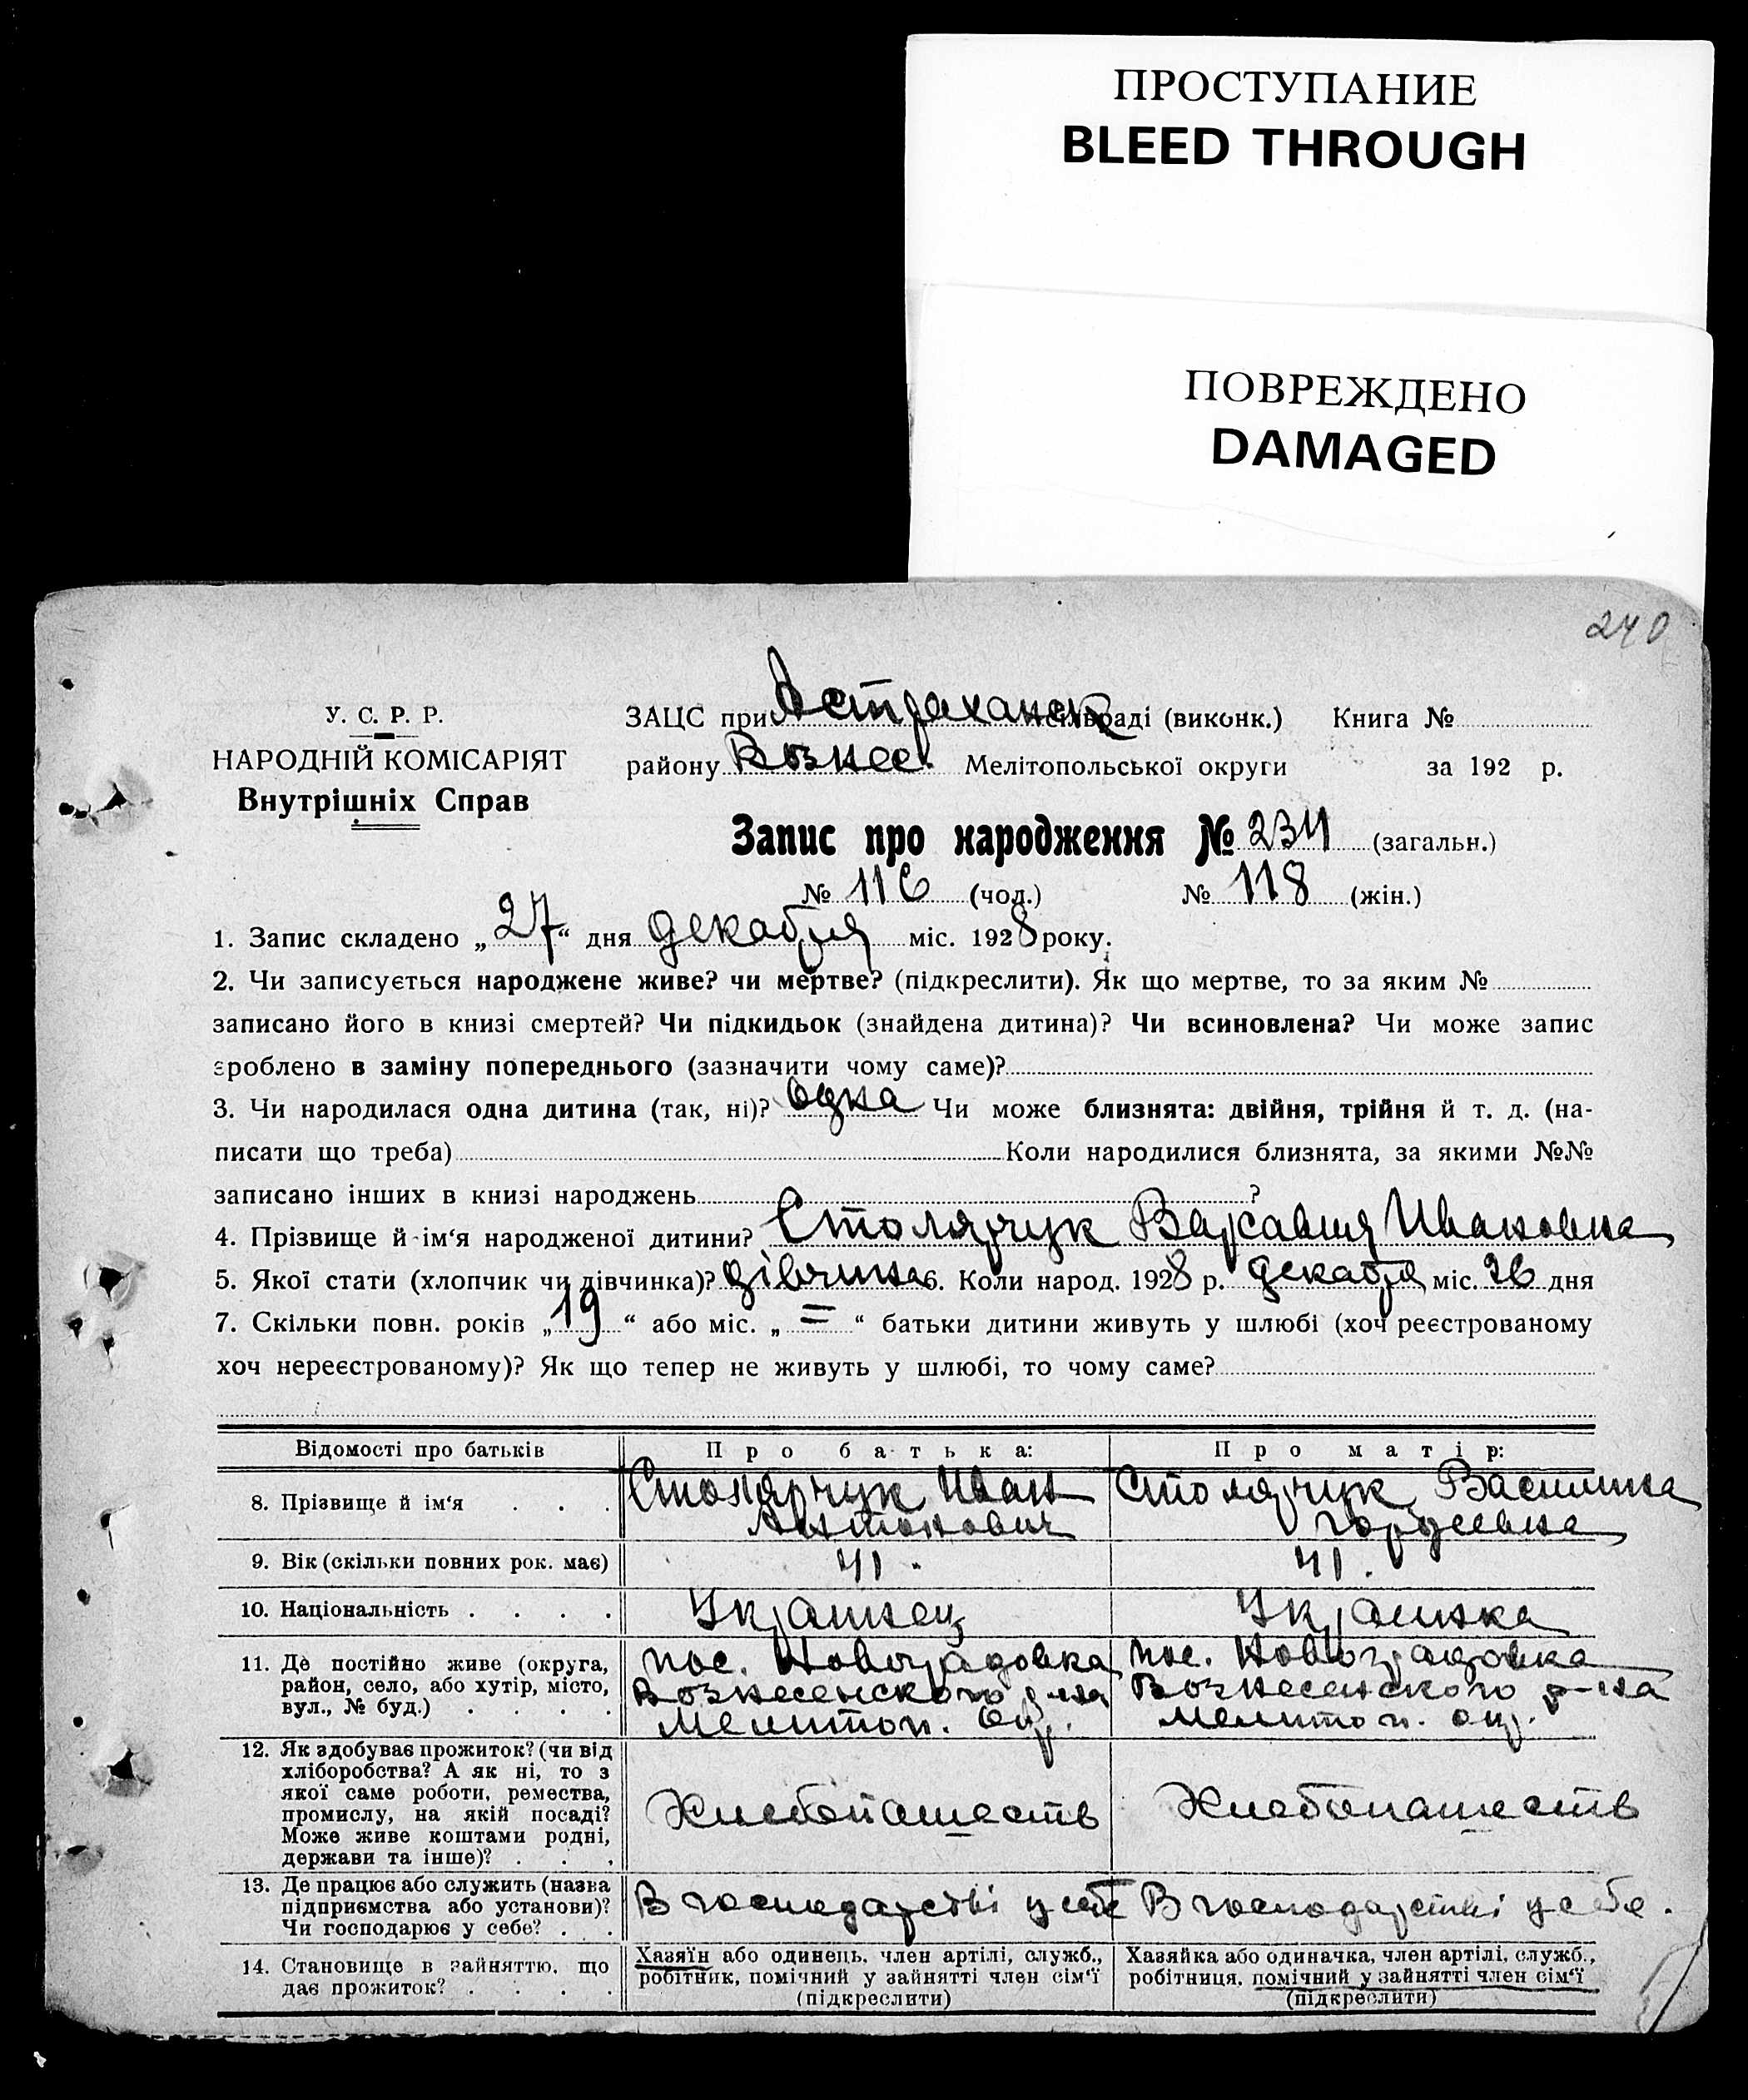 ПРОСТУПАНИЕ
BLEED THROUGH
ПОВРЕЖДЕНО
DAMAGED
240
У. С. Р. Р.
НАРОДНІЙ КОМІСАРІЯТ
Внутрішніх Справ
ЗАЦС при Астраханск сільраді (виконк.) Книга №
району Вознес. Мелітопольської округи за 192 р.
Запис про народження № 234 (загальн.)
№ 116 (чол.) № 118 (жін.)
1. Запис складено „27“ дня декабря міс. 1928 року.
2. Чи записується народжене живе? чи мертве? (підкреслити). Як що мертве, то за яким №
записано його в книзі смертей? Чи підкидьок (знайдена дитина)? Чи всиновлена? Чи може запис
зроблено в заміну попереднього (зазначити чому саме)?
3. Чи народилася одна дитина (так, ні)? Одна Чи може близнята: двійня, трійня й т. д. (на-
писати що треба) Коли народилися близнята, за якими №№
записано інших в книзі народжень ?
4. Прізвище й ім‘я народженої дитини? Столярчук Ивановна
5. Якої стати (хлопчик чи дівчинка)? дівчинка 6. Коли народ. 1928 р. декабря міс. 26 дня
7. Скільки повн. років „19“ або міс. „=“ батьки дитини живуть у шлюбі (хоч реєстрованому
хоч нереєстрованому)? Як що тепер не живуть у шлюбі, то чому саме?
Відомості про батьків Про батька: Про матір:
8. Прізвище й ім‘я . . . Столярчук Иван Антонович Столярчук Василина Гордеевна
9. Вік (скільки повних рок. має) 41. 41.
10. Національність . . . . Украинец Украинка
11. Де постійно живе (округа, район, село, або хутір, місто, вул., № буд.) . . . .
пос. Новоградовка Вознесенского р-на Мелитоп. окр.
пос. Новоградовка Вознесенского р-на Мелитоп. окр.
12. Як здобуває прожиток? (чи від хліборобства? А як ні, то з якої саме роботи, ремества, промислу, на якій посаді? Може живе коштами родні, держави та інше)? . . .
Хлебопашеств Хлебопашеств
13. Де працює або служить (назва підприємства або установи)? Чи господарює у себе? . .
В господарстві у себе В господарстві у себе.
14. Становище в зайняттю, що дає прожиток? . . . .
Хазяїн або одинець, член артілі, служб., робітник, помічний у зайнятті член сім‘ї (підкреслити)
Хазяйка або одиначка, член артілі, служб., робітниця, помічний у зайнятті член сім‘ї (підкреслити)